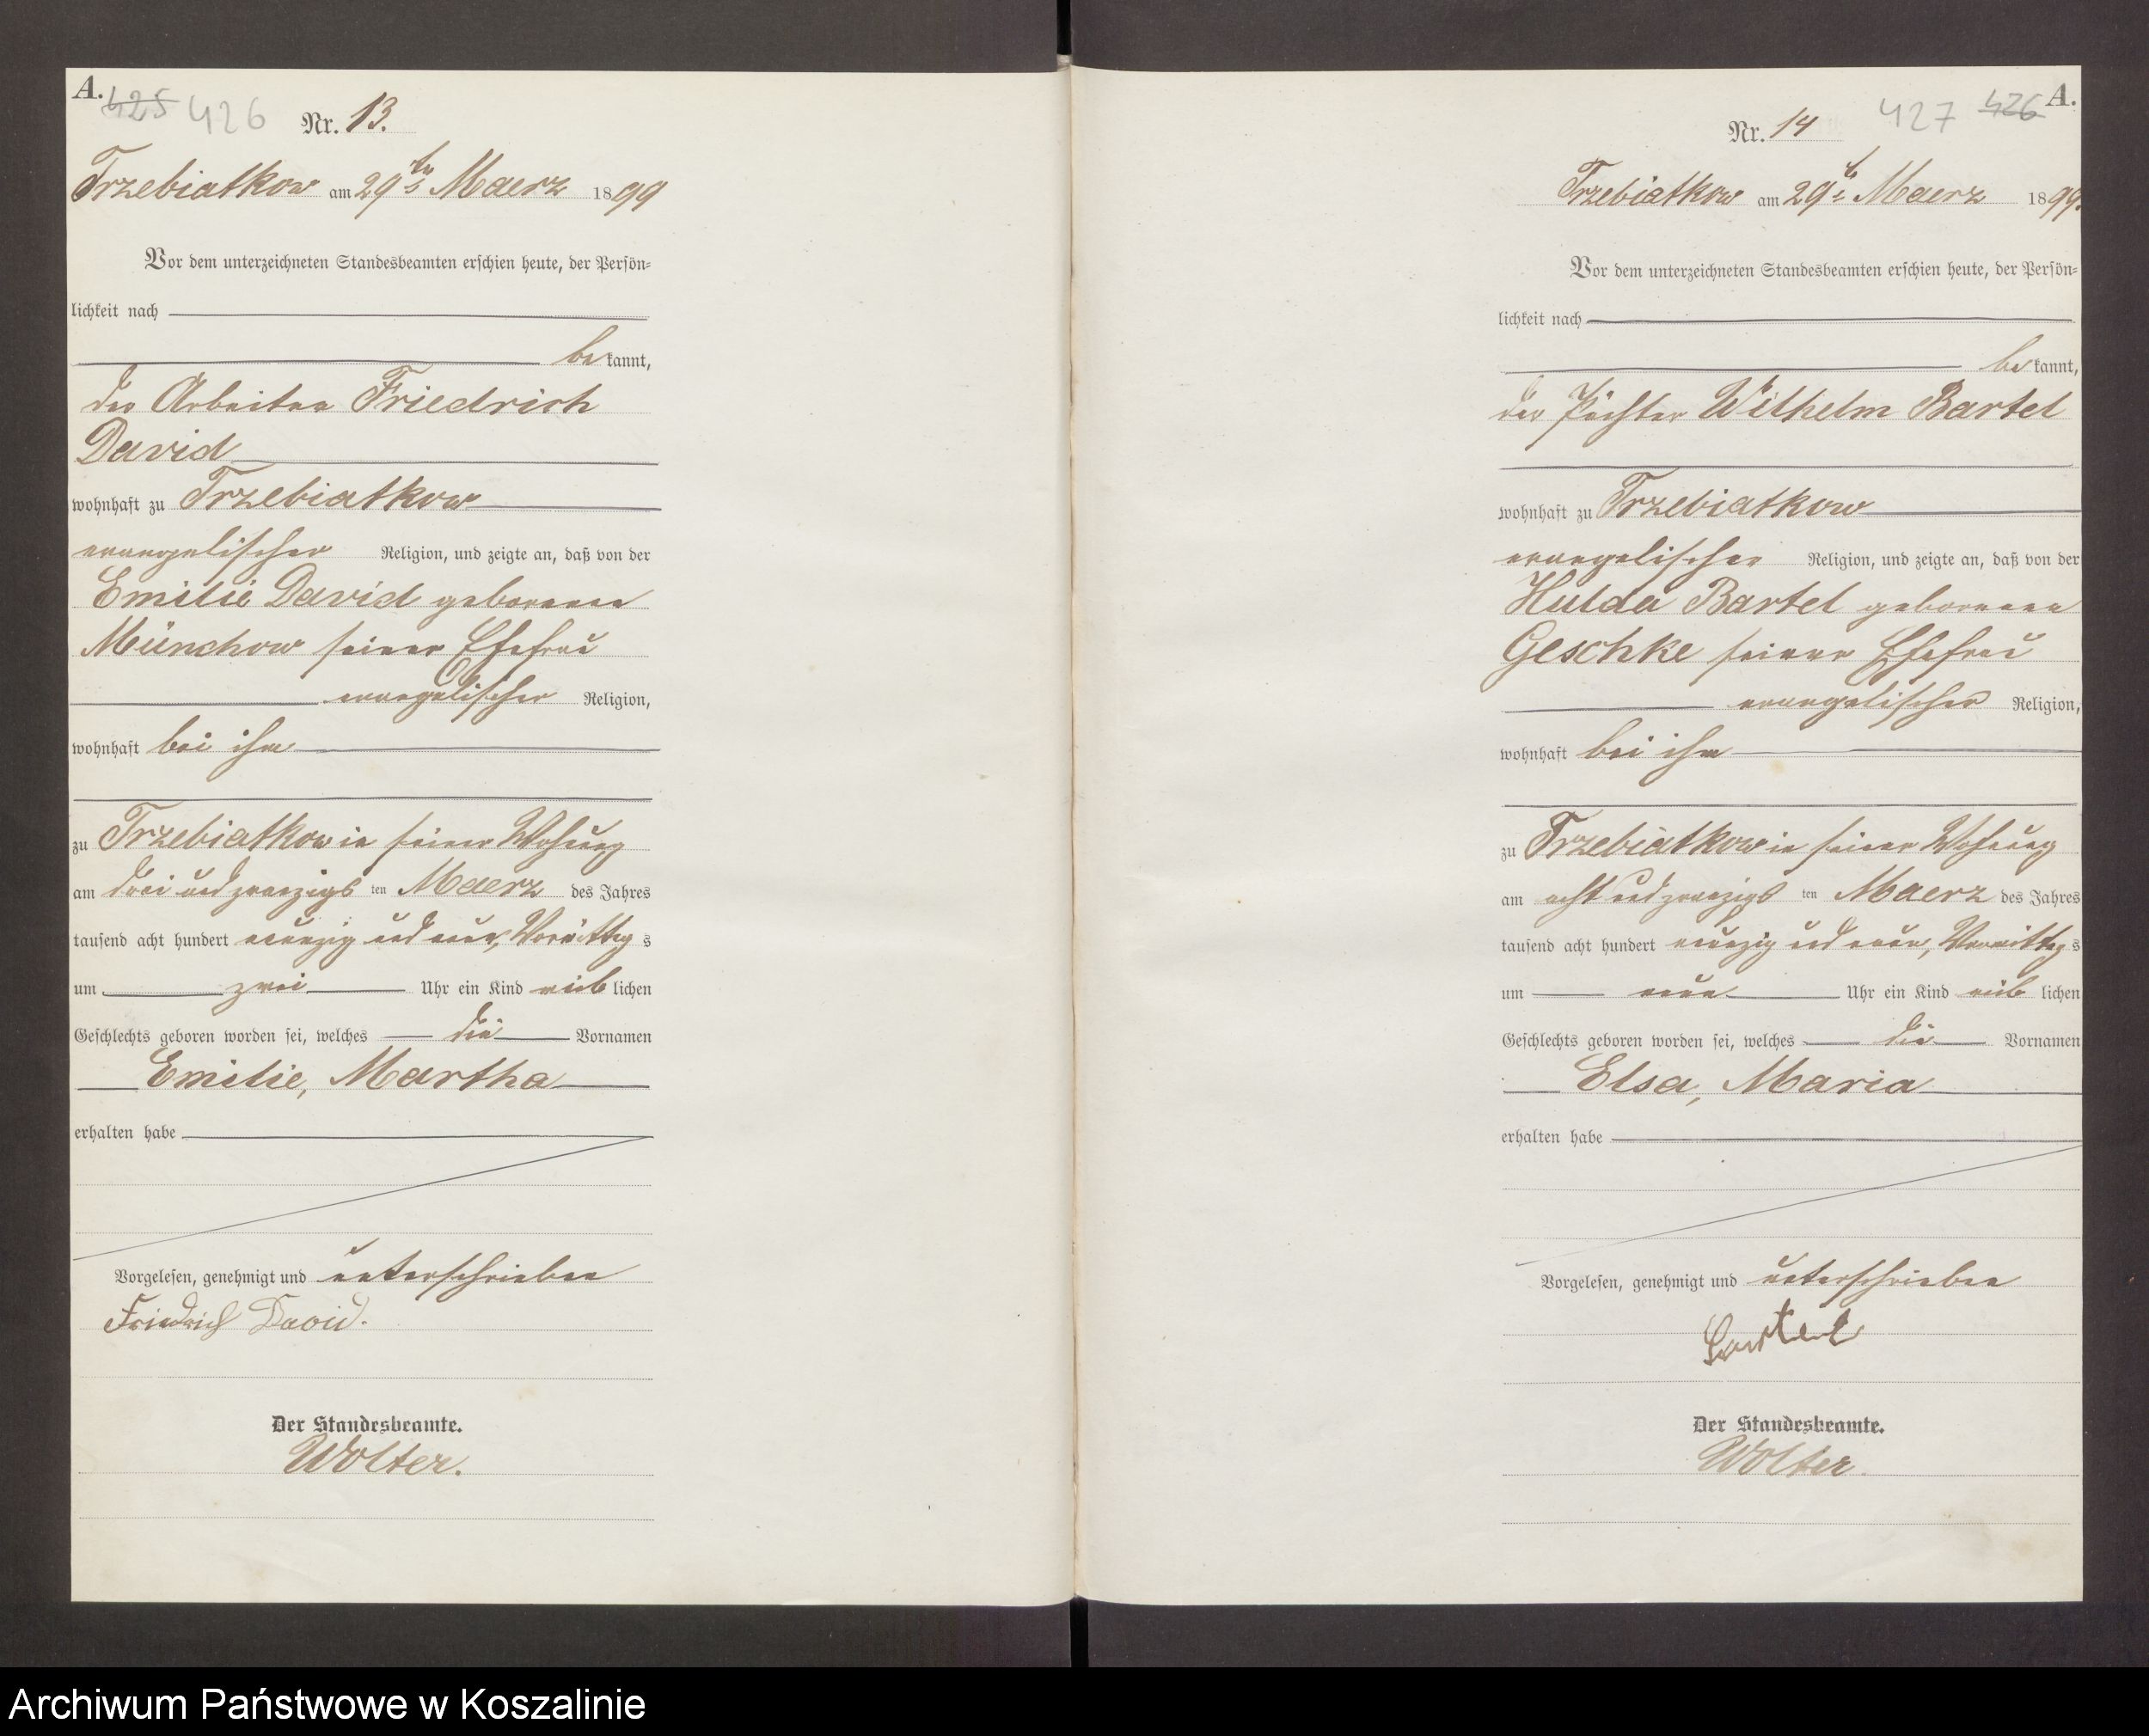 A.
425 426
Nr. 13.
Trzebiatkow am 29ten Maerz 1899
Vor dem unterzeichneten Standesbeamten erschien heute, der Persön-
lichkeit nach
be kannt,
der Arbeiter Friedrich
David
wohnhaft zu Trzebiatkow
evangelischer Religion, und zeigte an, daß von der
Emilie David geborenen
Münchow seiner Ehefrau
evangelischer Religion,
wohnhaft bei ihm
zu Trzebiatkow in seiner Wohnung
am drei und zwanzigs ten Maerz des Jahres
tausend acht hundert neunzig und neun, Vormittag s
um zwei Uhr ein Kind weib lichen
Geschlechts geboren worden sei, welches die Vornamen
Emilie, Martha
erhalten habe
Vorgelesen, genehmigt und unterschrieben
Friedrich David.
Der Standesbeamte.
Wolter.
A.
427 426
Nr. 14
Trzebiatkow am 29t Maerz 1899.
Vor dem unterzeichneten Standesbeamten erschien heute, der Persön-
lichkeit nach
be kannt,
der Pächter Wilhelm Bartel
wohnhaft zu Trzebiatkow
evangelischer Religion, und zeigte an, daß von der
Hulda Bartel geborenen
Geschke seiner Ehefrau
evangelischer Religion,
wohnhaft bei ihm
zu Trzebiatkow in seiner Wohnung
am acht und zwanzigs ten Maerz des Jahres
tausend acht hundert neunzig und neun, Vormittag s
um neun Uhr ein Kind weib lichen
Geschlechts geboren worden sei, welches die Vornamen
Elsa, Maria
erhalten habe
Vorgelesen, genehmigt und unterschrieben
Bartel
Der Standesbeamte.
Wolter
Archiwum Państwowe w Koszalinie